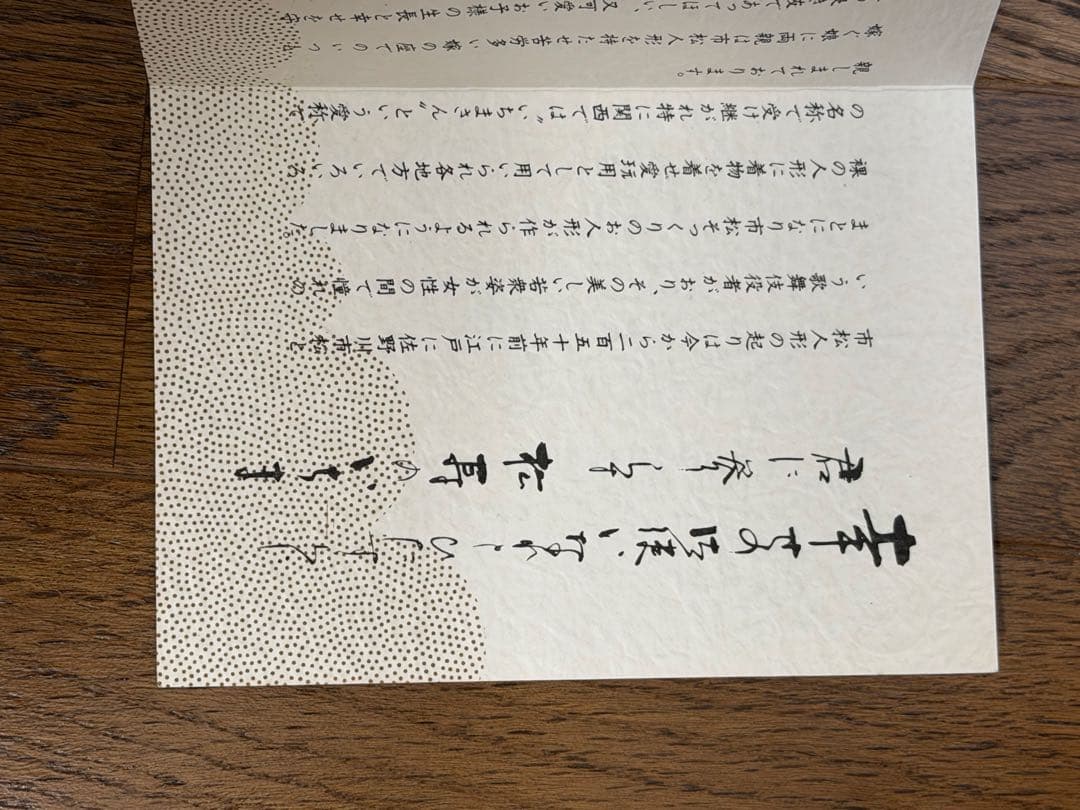 幸せ 願い
君に参らす 松寿の いちま
市松人形の起りは今から二百五十年前に江戸に佐野川市松と
いう歌舞伎役者がおり、その美しい若衆姿が女性の間で憧れの
まとになり市松そっくりのお人形が作られるようになりました。
裸の人形に着物を着せ愛玩用として用いられ各地方でいろいろ
の名称で受け継がれ特に関西では“いちまさん”という愛称で
親しまれております。
嫁ぐ娘に両親は市松人形を持たせ苦労多い嫁の座でのいつ
友であってほしい、又可愛いお子様の生長と幸せを守